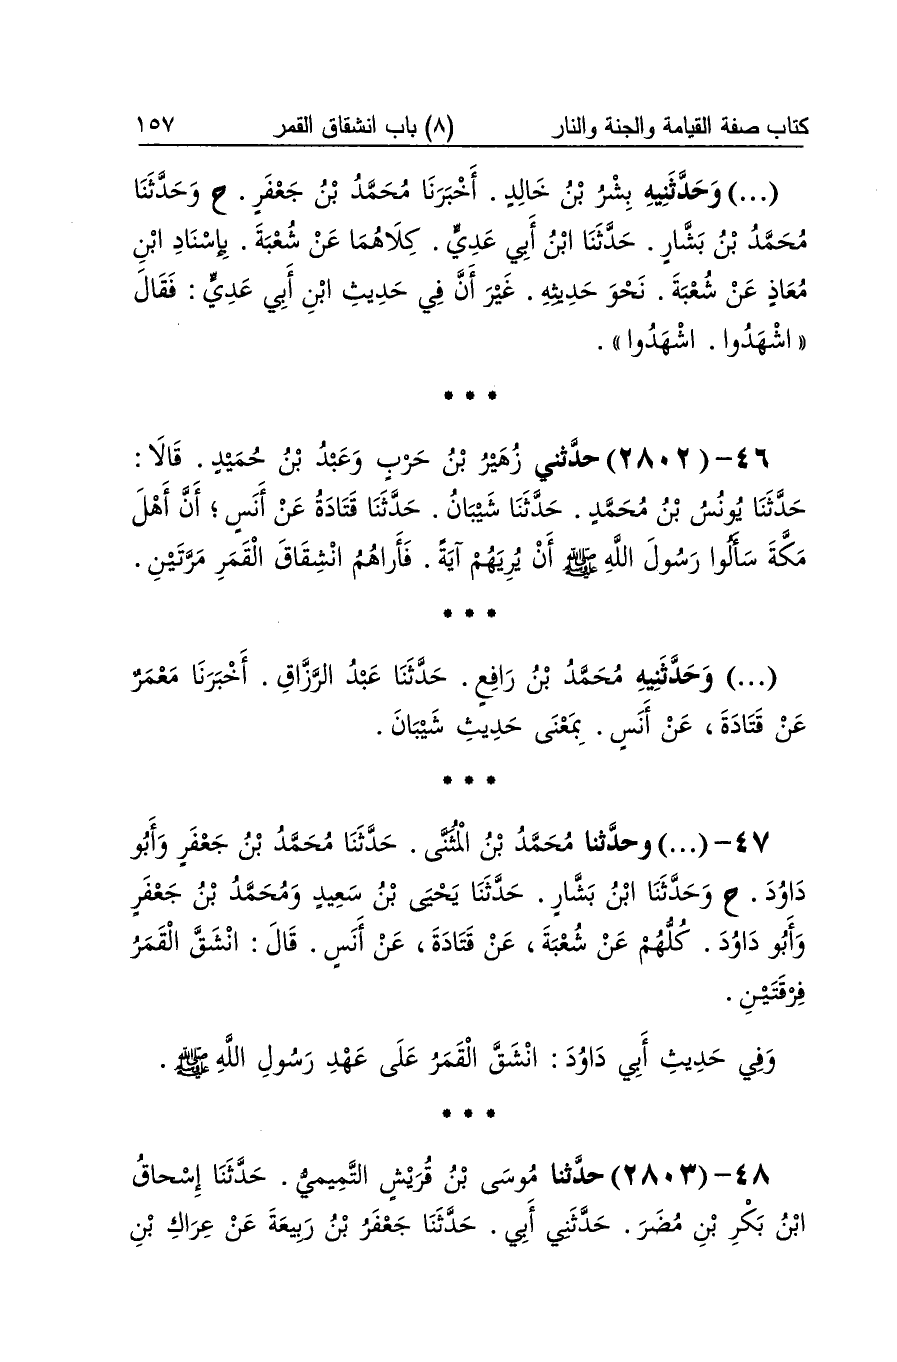 كتاب صفة القيامة والجنة والنار (٨) باب انشقاق القمر ١٥٧
(...) وَحَدَّثَنِيهِ بِشْرُ بْنُ خَالِدٍ . أَخْبَرَنَا مُحَمَّدُ بْنُ جَعْفَرٍ . ح وَحَدَّثَنَا
مُحَمَّدُ بْنُ بَشَّارٍ . حَدَّثَنَا ابْنُ أَبِي عَدِيٍّ . كِلَاهُمَا عَنْ شُعْبَةَ . بِإِسْنَادِ ابْنِ
مُعَاذٍ عَنْ شُعْبَةَ . نَحْوَ حَدِيثِهِ . غَيْرَ أَنَّ فِي حَدِيثِ ابْنِ أَبِي عَدِيٍّ : فَقَالَ
« اشْهَدُوا . اشْهَدُوا » .
* * *
٤٦- (٢٨٠٢) حدَّثني زُهَيْرُ بْنُ حَرْبٍ وَعَبْدُ بْنُ حُمَيْدٍ . قَالَا :
حَدَّثَنَا يُونُسُ بْنُ مُحَمَّدٍ . حَدَّثَنَا شَيْبَانُ . حَدَّثَنَا قَتَادَةُ عَنْ أَنَسٍ ؛ أَنَّ أَهْلَ
مَكَّةَ سَأَلُوا رَسُولَ اللَّهِ ﷺ أَنْ يُرِيَهُمْ آيَةً . فَأَرَاهُمُ انْشِقَاقَ الْقَمَرِ مَرَّتَيْنِ .
* * *
(...) وَحَدَّثَنِيهِ مُحَمَّدُ بْنُ رَافِعٍ . حَدَّثَنَا عَبْدُ الرَّزَّاقِ . أَخْبَرَنَا مَعْمَرٌ
عَنْ قَتَادَةَ ، عَنْ أَنَسٍ . بِمَعْنَى حَدِيثِ شَيْبَانَ .
* * *
٤٧- (...) وحدَّثنا مُحَمَّدُ بْنُ الْمُثَنَّى . حَدَّثَنَا مُحَمَّدُ بْنُ جَعْفَرٍ وَأَبُو
دَاوُدَ . ح وَحَدَّثَنَا ابْنُ بَشَّارٍ . حَدَّثَنَا يَحْيَى بْنُ سَعِيدٍ وَمُحَمَّدُ بْنُ جَعْفَرٍ
وَأَبُو دَاوُدَ . كُلُّهُمْ عَنْ شُعْبَةَ ، عَنْ قَتَادَةَ ، عَنْ أَنَسٍ . قَالَ : انْشَقَّ الْقَمَرُ
فِرْقَتَيْنِ .
وَفِي حَدِيثِ أَبِي دَاوُدَ : انْشَقَّ الْقَمَرُ عَلَى عَهْدِ رَسُولِ اللَّهِ ﷺ .
* * *
٤٨- (٢٨٠٣) حدَّثنا مُوسَى بْنُ قُرَيْشٍ التَّمِيمِيُّ . حَدَّثَنَا إِسْحاقُ
ابْنُ بَكْرِ بْنِ مُضَرَ . حَدَّثَنِي أَبِي . حَدَّثَنَا جَعْفَرُ بْنُ رَبِيعَةَ عَنْ عِرَاكِ بْنِ